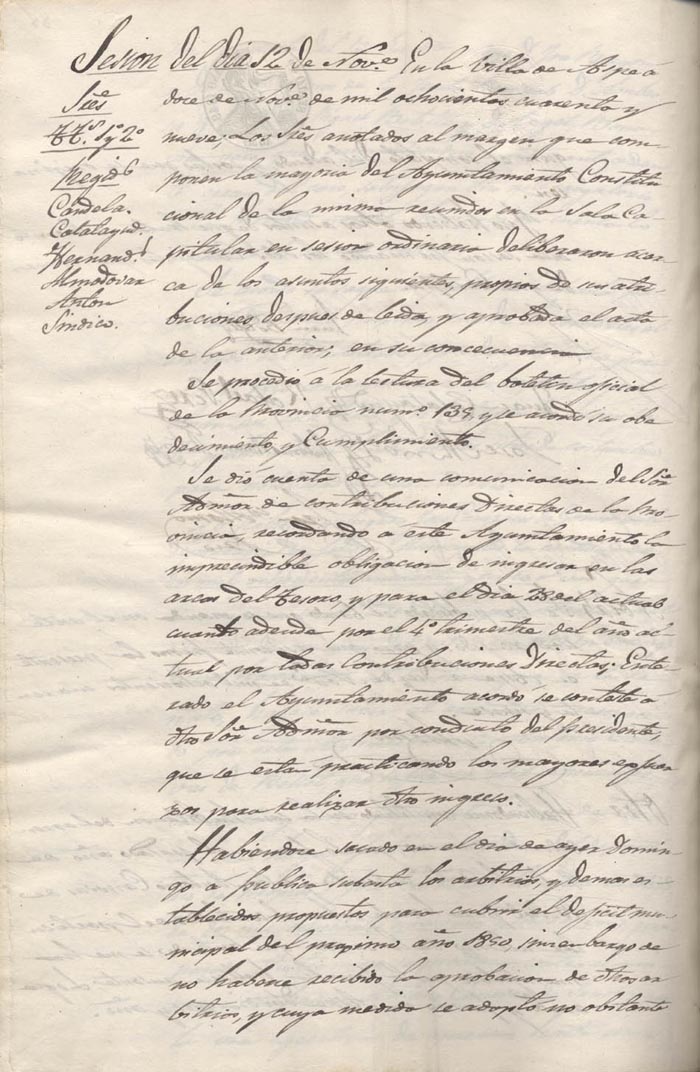 Sesion del dia 12 de Nov.e En la Villa de Aspe á
doce de Nov.e de mil ochocientos cuarenta y
nueve, Los Srēs anotados al margen que com
ponen la mayoria del Ayuntamiento Constitu
cional de la misma reunidos en la Sala Ca
pitular en sesion ordinaria deliberaron acer
ca de los asuntos siguientes, propios de sus atri
buciones, despues de leida, y aprobada el acta
de la anterior; en su concecuencia
Srēs
TT.s 1.º y 2.º
Regid.s
Candela.
Calatayud.
Hernand.z
Almodovar
Anton
Sindico.
Se procedió á la lectura del boletin oficial
de la Provincia num.º 135, y se acordó su obe
decimiento, y Cumplimiento.
Se dió cuenta de una comunicacion del Sōr
Admōr de contribuciones Directas de la Pro
vincia, recordando á este Ayuntamiento la
imprecindible obligacion de ingresar en las
arcas del Tesoro, y para el dia del actual
cuanto adeude por el 4.º trimestre del año ac
tual por todas Contribuciones Directas; Ente
rado el Ayuntamiento acordó se conteste á
dho Sōr Admōr por conducto del Presidente,
que se estan practicando los mayores esfuer
zos para realizar dho ingreso.
Habiendose sacado en el dia de ayer Domin
go á publica subasta los arbitrios, y demas es
tablecidos propuestos para cubrir el deficit mu
nicipal del proximo año 1850, sin embargo de
no haberse recibido la aprobacion de dhos ar
bitrios, y cuya medida se adoptó no obstante